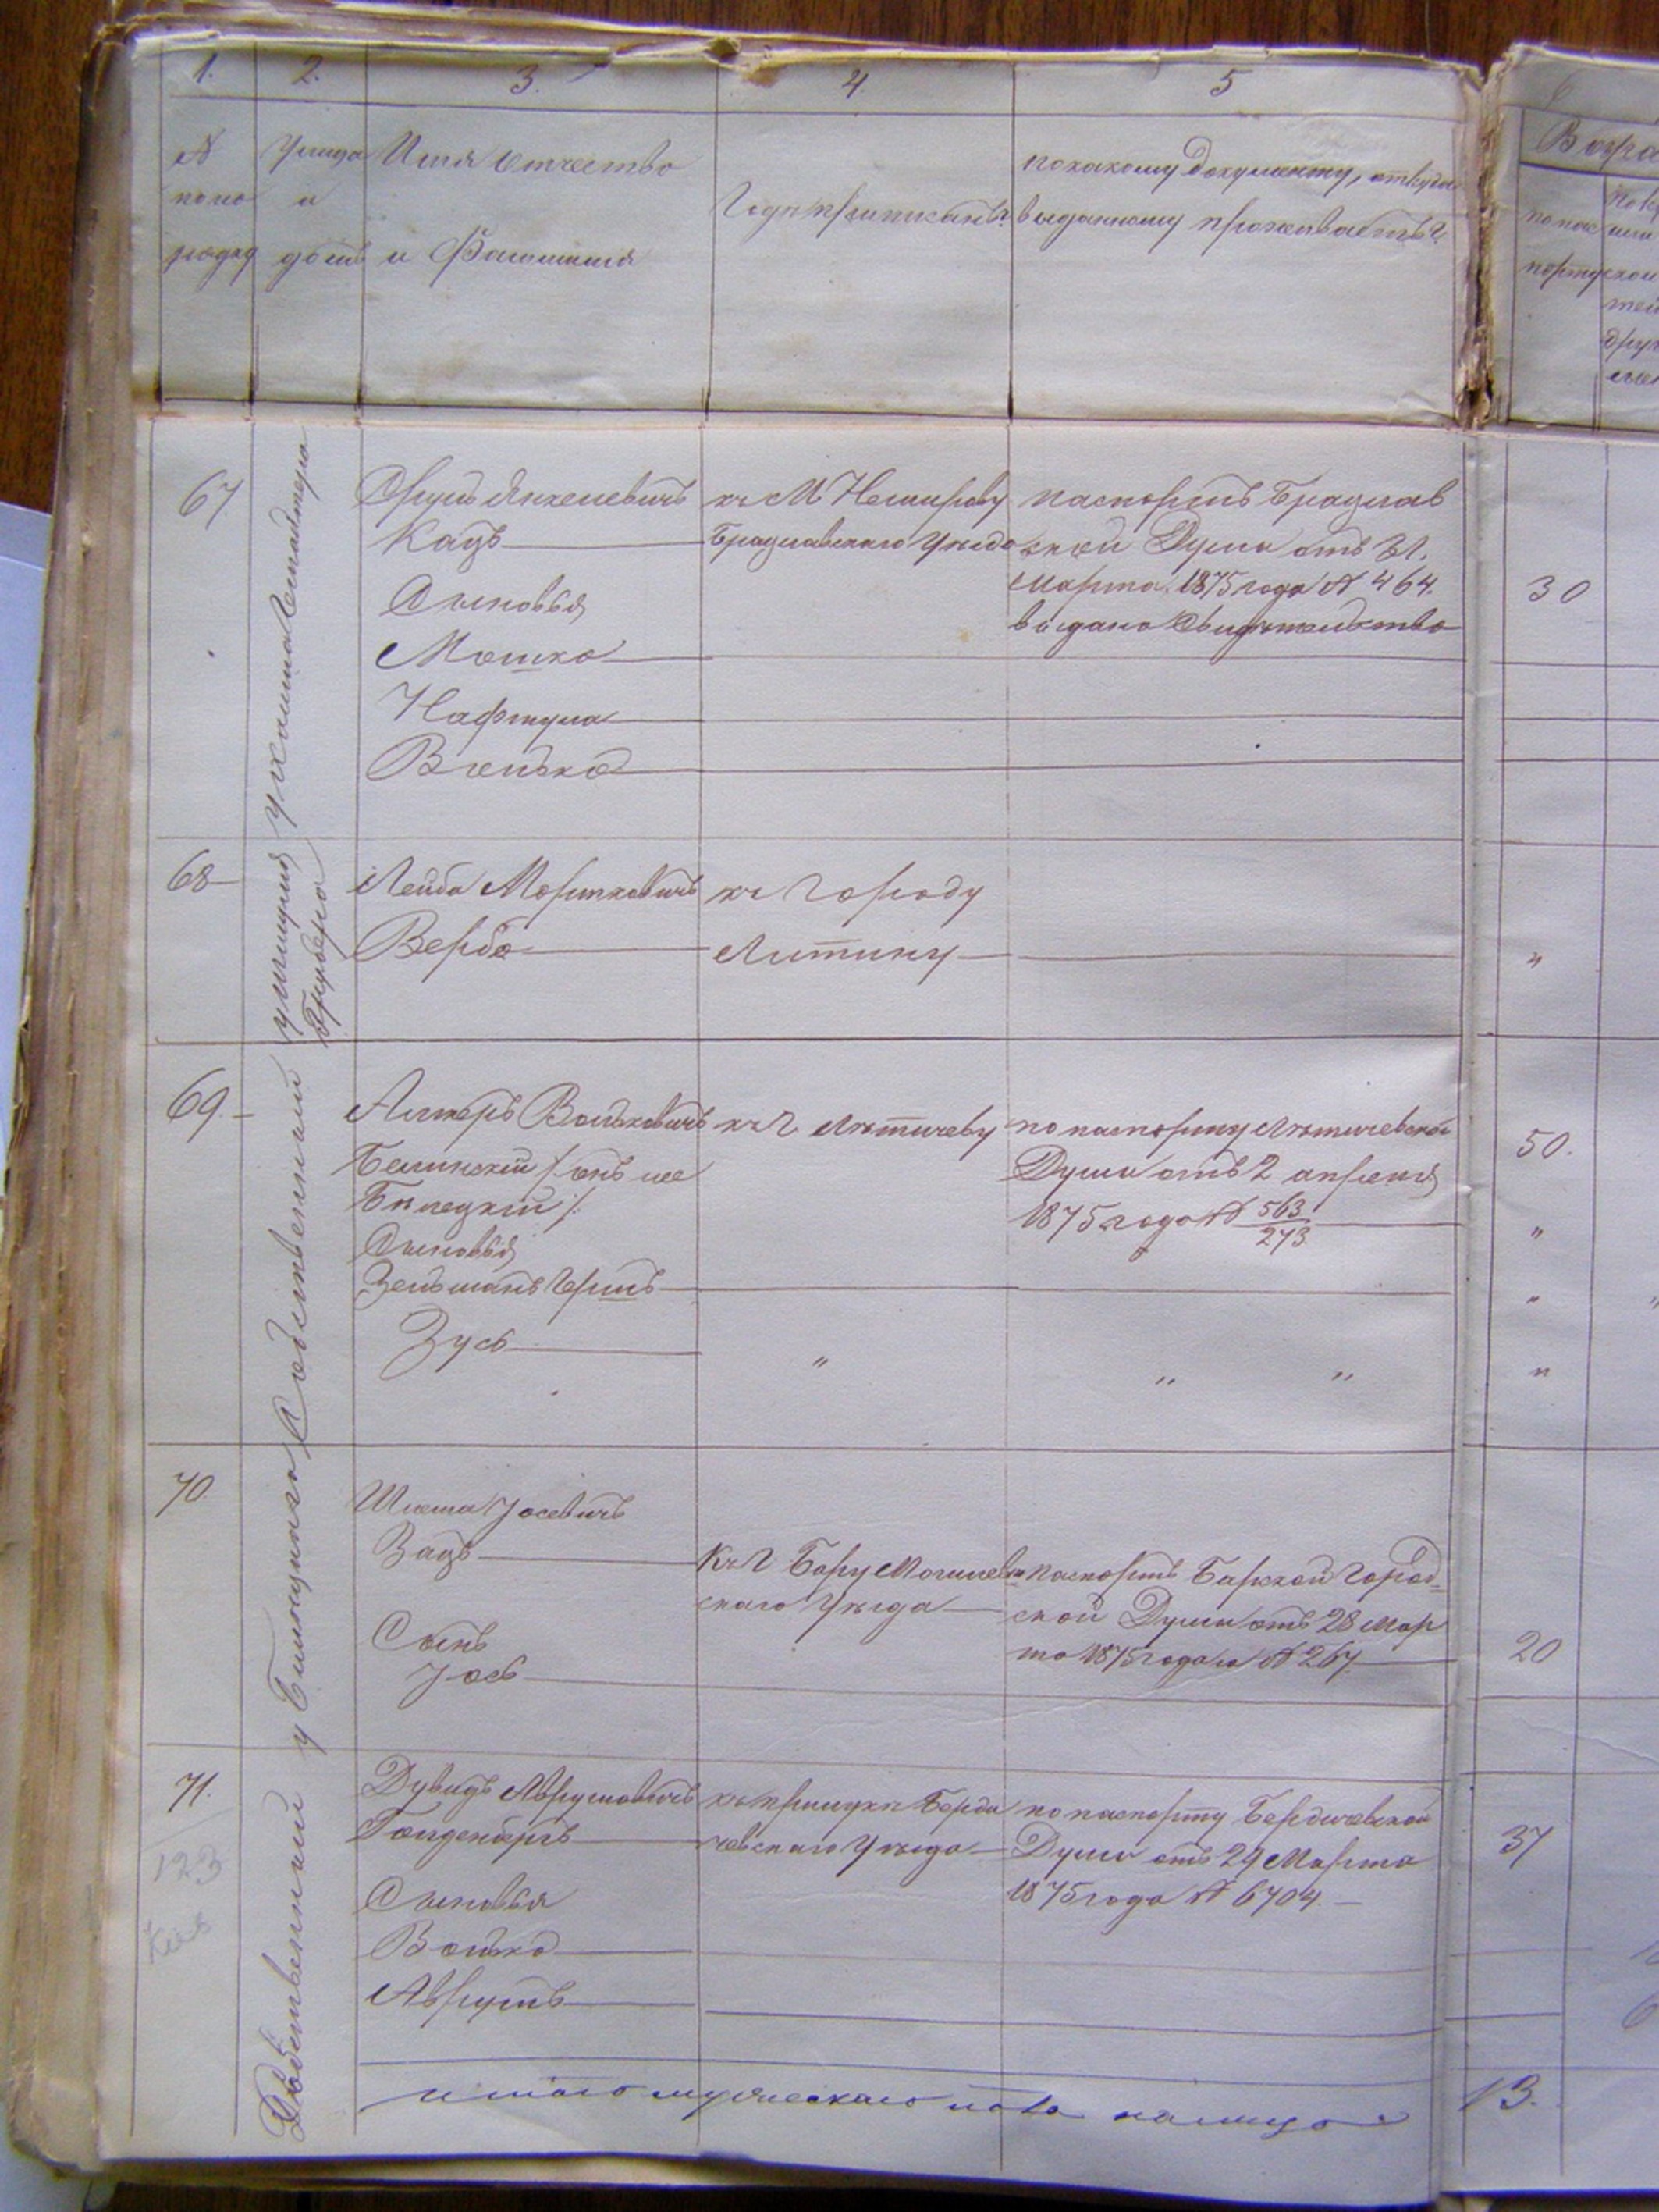 1. 2. 3. 4. 5
№ Улица Имя Отчество
по по и
рядку домъ и Фамилия
Годъ приписанъ?
по какому Документу, откуда
выданному проживаетъ?
Возра
по пас
порту
67
Срулъ Янкелевичъ
Кацъ
Сыновья
Мошко
Нафтула
Волько
къ М Немирову
Брацлавскаго Уезда
паспортъ Брацлав
ской Думы отъ 31.
Марта 1875 года № 464.
выдано Свидетельство
30
68
Лейба Мортковичъ
Верба
къ Городу
Литину
"
69.
Алтеръ Вольковичъ
Белинский /онъ же
Билецкий/
Сыновья
Зельманъ Гершъ
Зусь
къ Г. Летичеву
по паспорту Летичевской
Думы отъ 2 апреля
1875 года № 563
273
50.
"
"
"
70.
Шлема Іосевичъ
Зацъ
Сынъ
Іось
Къ Г Бару Могилев
скаго Уезда
паспортъ Барской Город
ской Думы отъ 28 мар
та 1875 года № 267.
20
71.
Дувидъ Аврумовичъ
Гольденбергъ
Сыновья
Волько
Аврумъ
къ прилуке Берди
чевскаго Уезда
по паспорту Бердичевской
Думы отъ 29 Марта
1875 года № 6704.
37
123
итого мужескаго пола налицо
13.